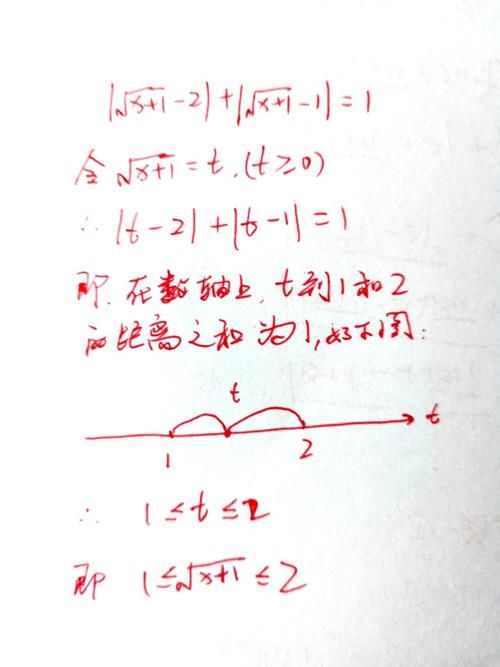 |√x+1 -2|+|√x+1 -1|=1
令 √x+1 = t, (t≥0)
∴ |t-2|+|t-1|=1
即, 在数轴上, t到1和2
的距离之和为1, 如下图:
t
t
1 2
∴ 1≤t≤2
即 1≤√x+1≤2